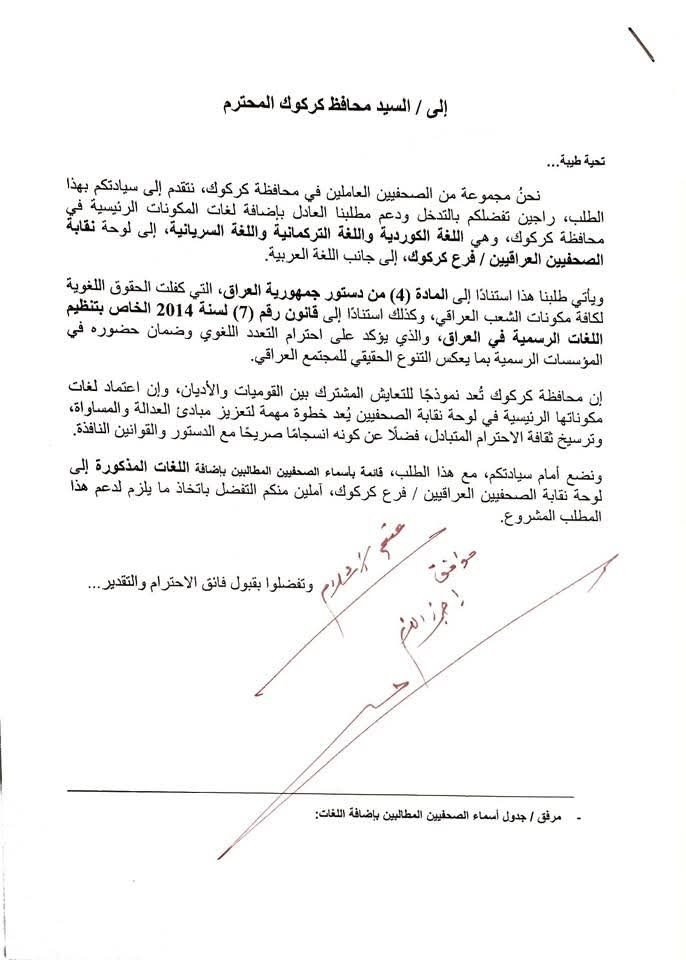 إلى / السيد محافظ كركوك المحترم
تحية طيبة...
نحنُ مجموعة من الصحفيين العاملين في محافظة كركوك، نتقدم إلى سيادتكم بهذا
الطلب، راجين تفضلكم بالتدخل ودعم مطلبنا العادل بإضافة لغات المكونات الرئيسية في
محافظة كركوك، وهي اللغة الكوردية واللغة التركمانية واللغة السريانية، إلى لوحة نقابة
الصحفيين العراقيين / فرع كركوك، إلى جانب اللغة العربية.
ويأتي طلبنا هذا استنادًا إلى المادة (4) من دستور جمهورية العراق، التي كفلت الحقوق اللغوية
لكافة مكونات الشعب العراقي، وكذلك استنادًا إلى قانون رقم (7) لسنة 2014 الخاص بتنظيم
اللغات الرسمية في العراق، والذي يؤكد على احترام التعدد اللغوي وضمان حضوره في
المؤسسات الرسمية بما يعكس التنوع الحقيقي للمجتمع العراقي.
إن محافظة كركوك تُعد نموذجًا للتعايش المشترك بين القوميات والأديان، وإن اعتماد لغات
مكوناتها الرئيسية في لوحة نقابة الصحفيين يُعد خطوة مهمة لتعزيز مبادئ العدالة والمساواة،
وترسيخ ثقافة الاحترام المتبادل، فضلًا عن كونه انسجامًا صريحًا مع الدستور والقوانين النافذة.
ونضع أمام سيادتكم، مع هذا الطلب، قائمة بأسماء الصحفيين المطالبين بإضافة اللغات المذكورة إلى
لوحة نقابة الصحفيين العراقيين / فرع كركوك، آملين منكم التفضل باتخاذ ما يلزم لدعم هذا
المطلب المشروع.
موافق
وتفضلوا بقبول فائق الاحترام والتقدير...
- مرفق / جدول أسماء الصحفيين المطالبين بإضافة اللغات: